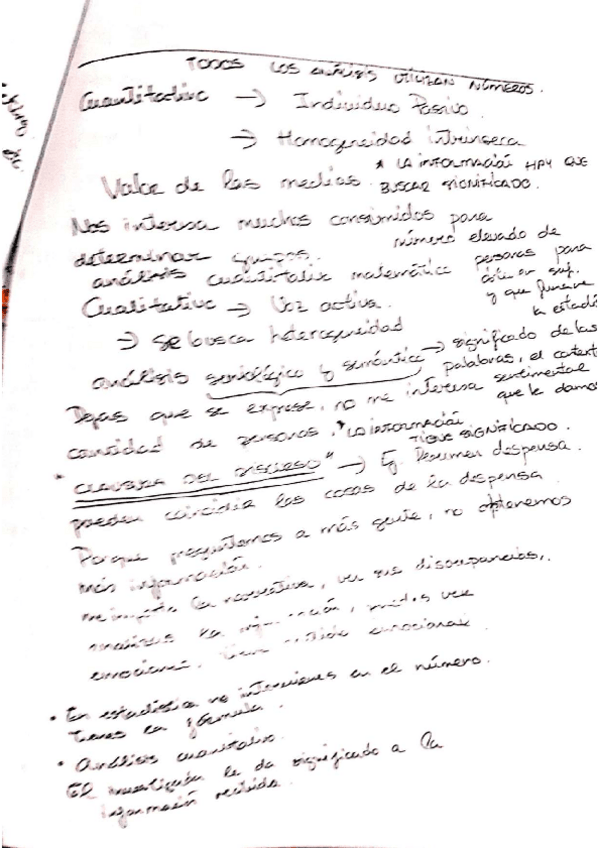 TODOS LOS ANÁLISIS UTILIZAN NÚMEROS.
Cuantitativo → Individuo Pasivo
→ Homogeneidad intrínseca
* LA INFORMACIÓN HAY QUE
BUSCAR SIGNIFICADO.
Valor de las medias.
Nos interesa muchos consumidos para
determinar grupos.
número elevado de
personas para
y que funcione
la estadí
análisis cuantitativo matemático
Cualitativo → Voz activa.
→ se busca heterogeneidad
análisis semiológico y semántico → significado de las
palabras, el context
sentimental
que le damos
Dejas que se exprese, no me interesa
cantidad de personas. * LA INFORMACIÓN
TIENE SIGNIFICADO.
"CLAUSURA DEL DISCURSO" → Ej. Resumen despensa.
pueden coincidir las cosas de la despensa
Porque preguntemos a más gente, no obtenemos
más información.
me importa la narrativa, ver sus discrepancias,
emocional
• En estadística no intervienes en el número.
Tienes la fórmula.
• Análisis cuantitativo.
El investigador le da significado a la
información recibida.